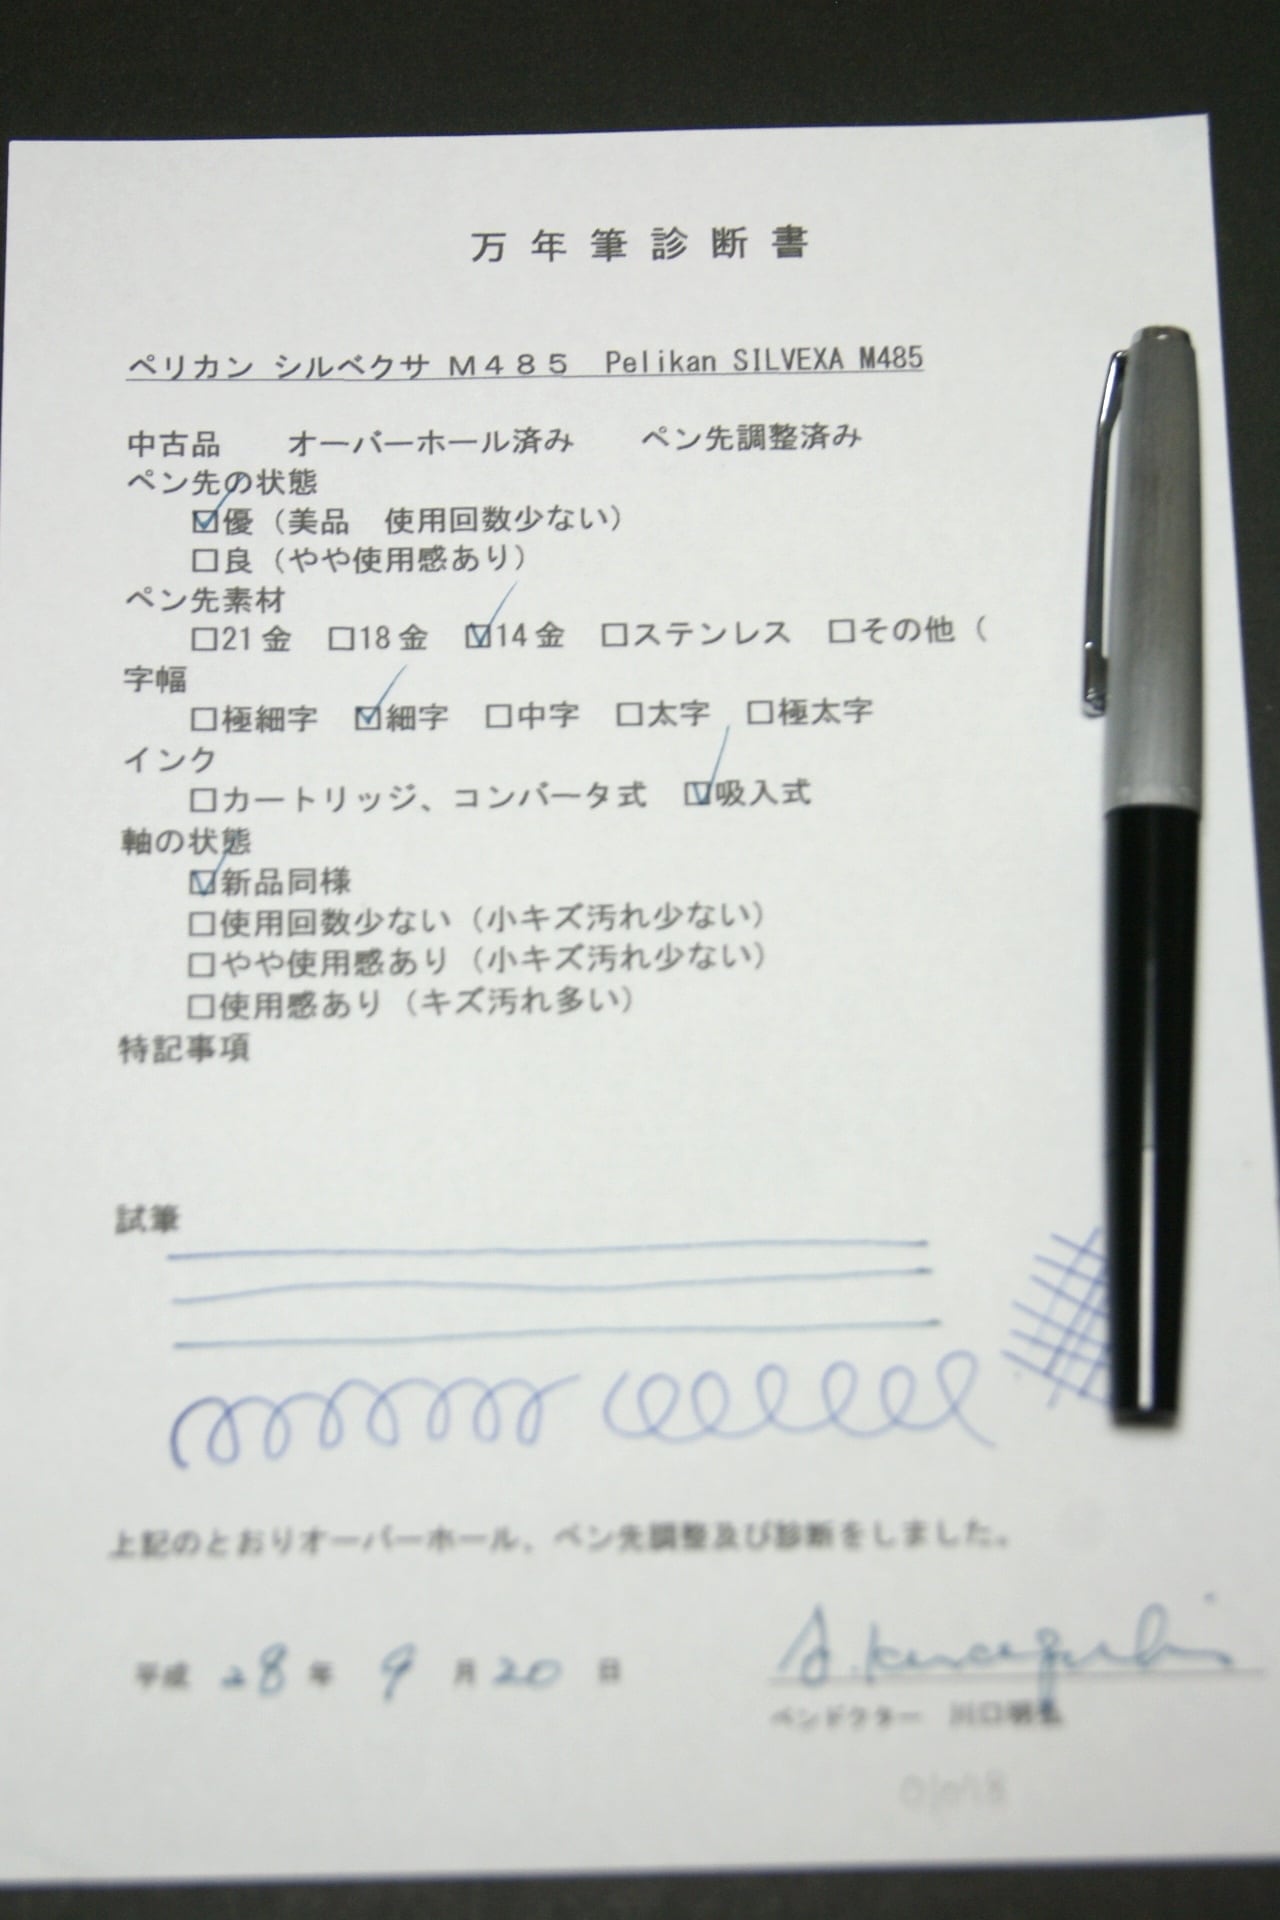 万年筆診断書
ペリカン シルベクサ M485 Pelikan SILVEXA M485
中古品 オーバーホール済み ペン先調整済み
ペン先の状態
☑優（美品 使用回数少ない）
□良（やや使用感あり）
ペン先素材
□21金 □18金 ☑14金 □ステンレス □その他（
字幅
□極細字 ☑細字 □中字 □太字 □極太字
インク
□カートリッジ、コンバータ式 ☑吸入式
軸の状態
☑新品同様
□使用回数少ない（小キズ汚れ少ない）
□やや使用感あり（小キズ汚れ少ない）
□使用感あり（キズ汚れ多い）
特記事項
試筆
上記のとおりオーバーホール、ペン先調整及び診断をしました。
平成 28 年 9 月 20 日
ペンドクター 川口